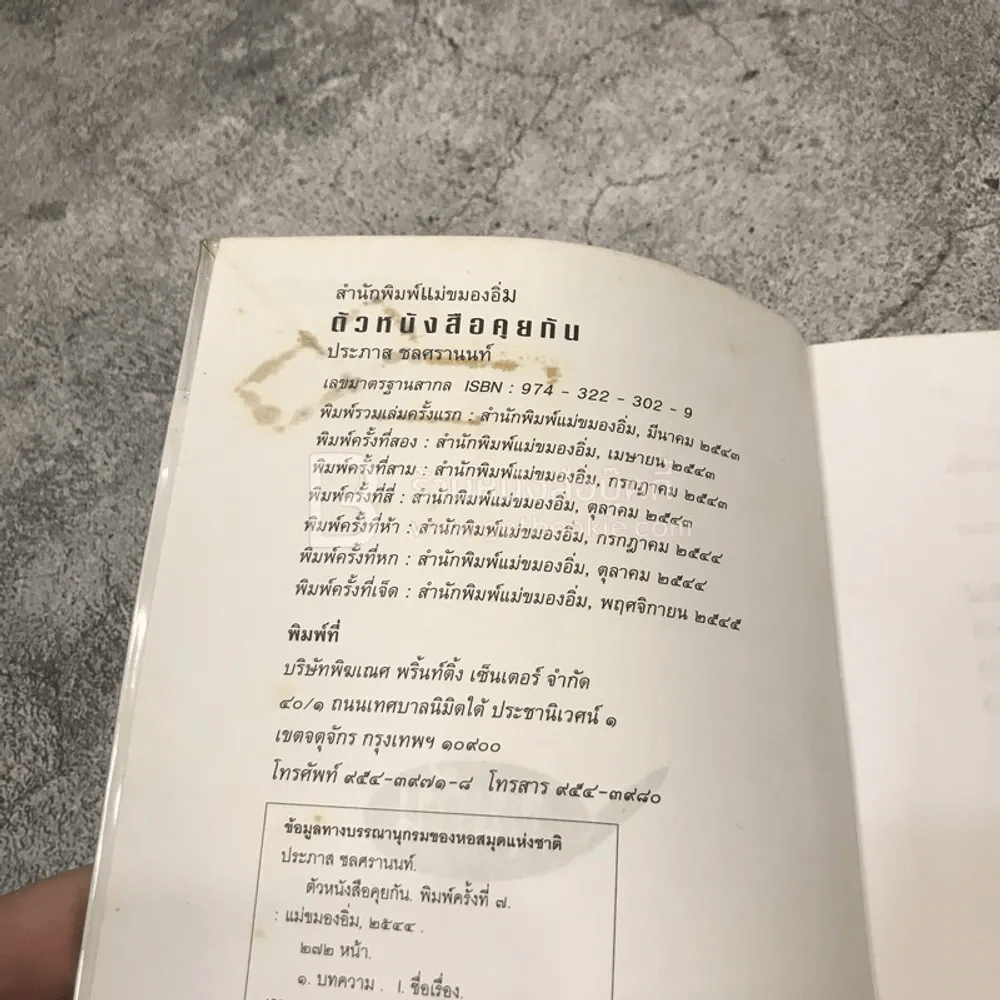 สำนักพิมพ์แม่ขมองอิ่ม
ตัวหนังสือคุยกัน
ประภาส ชลศรานนท์
เลขมาตรฐานสากล ISBN : 974 - 322 - 302 - 9
พิมพ์รวมเล่มครั้งแรก : สำนักพิมพ์แม่ขมองอิ่ม, มีนาคม ๒๕๔๓
พิมพ์ครั้งที่สอง : สำนักพิมพ์แม่ขมองอิ่ม, เมษายน ๒๕๔๓
พิมพ์ครั้งที่สาม : สำนักพิมพ์แม่ขมองอิ่ม, กรกฎาคม ๒๕๔๓
พิมพ์ครั้งที่สี่ : สำนักพิมพ์แม่ขมองอิ่ม, ตุลาคม ๒๕๔๓
พิมพ์ครั้งที่ห้า : สำนักพิมพ์แม่ขมองอิ่ม, กรกฎาคม ๒๕๔๔
พิมพ์ครั้งที่หก : สำนักพิมพ์แม่ขมองอิ่ม, ตุลาคม ๒๕๔๔
พิมพ์ครั้งที่เจ็ด : สำนักพิมพ์แม่ขมองอิ่ม, พฤศจิกายน ๒๕๔๕
พิมพ์ที่
บริษัทพิฆเณศ พริ้นท์ติ้ง เซ็นเตอร์ จำกัด
๔๐/๑ ถนนเทศบาลนิมิตใต้ ประชานิเวศน์ ๑
เขตจตุจักร กรุงเทพฯ ๑๐๙๐๐
โทรศัพท์ ๙๕๔-๓๙๗๑-๘ โทรสาร ๙๕๔-๓๙๘๐
ข้อมูลทางบรรณานุกรมของหอสมุดแห่งชาติ
ประภาส ชลศรานนท์.
ตัวหนังสือคุยกัน. พิมพ์ครั้งที่ ๗.
: แม่ขมองอิ่ม, ๒๕๔๔ .
๒๗๒ หน้า.
๑. บทความ . I. ชื่อเรื่อง.